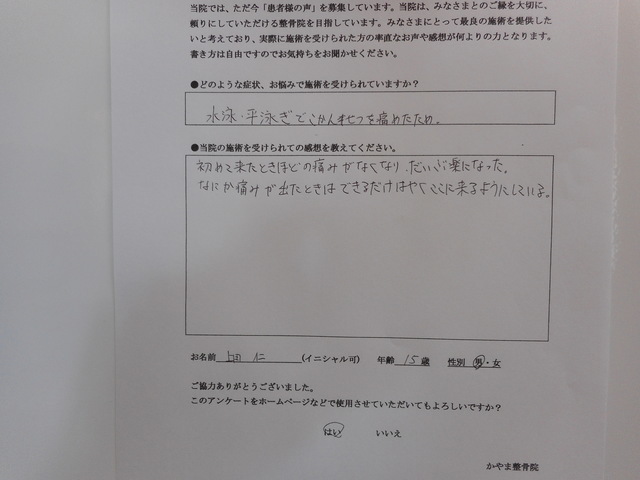 当院では、ただ今「患者様の声」を募集しています。当院は、みなさまとのご縁を大切に、
頼りにしていただける整骨院を目指しています。みなさまにとって最良の施術を提供した
いと考えており、実際に施術を受けられた方の率直なお声や感想が何よりの力となります。
書き方は自由ですのでお気持ちをお聞かせください。
●どのような症状、お悩みで施術を受けられていますか？
水泳・平泳ぎでこかんせつを痛めたため。
●当院の施術を受けられての感想を教えてください。
初めて来たときほどの痛みがなくなり、だいぶ楽になった。
なにか痛みが出たときはできるだけはやくここに来るようにしている。
お名前 上田 仁 (イニシャル可) 年齢 15 歳 性別 男・女
ご協力ありがとうございました。
このアンケートをホームページなどで使用させていただいてもよろしいですか？
はい いいえ
かやま整骨院